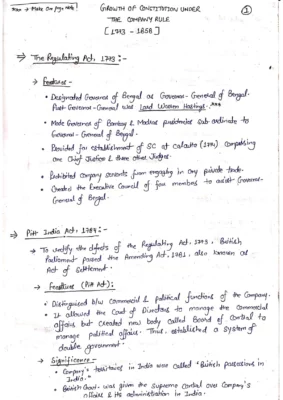 Plan → Make One page Note!
①
GROWTH OF CONSTITUTION UNDER
THE COMPANY RULE
[1773 - 1858]
⇒ The Regulating Act, 1773 :-
→ Features -
• Designated Governor of Bengal as Governor-General of Bengal.
First Governor-General was Lord Warren Hastings. ***
• Made Governor of Bombay & Madras presidencies sub-ordinate to
Governor-General of Bengal.
• Provided for establishment of SC at Calcutta (1774) comprising
one Chief Justice & three other Judges.
• Prohibited company servants from engaging in any private trade.
• Created the Executive Council of four members to assist Governor-
General of Bengal.
⇒ Pitt India Act, 1784 :-
→ To rectify the defects of the Regulating Act, 1773, British
Parliament passed the Amending Act, 1781, also known as
Act of Settlement.
→ Features (Pitt Act):
• Distinguished b/w commercial & political functions of the Company.
• It allowed the Court of Directors to manage the commercial
affairs but created new body called Board of Control to
manage political affairs. Thus, established a system of
double government.
→ Significance -
• Company's territories in India were called "British possessions in
India."
• British Govt. was given the supreme control over Company's
affairs & its administration in India.